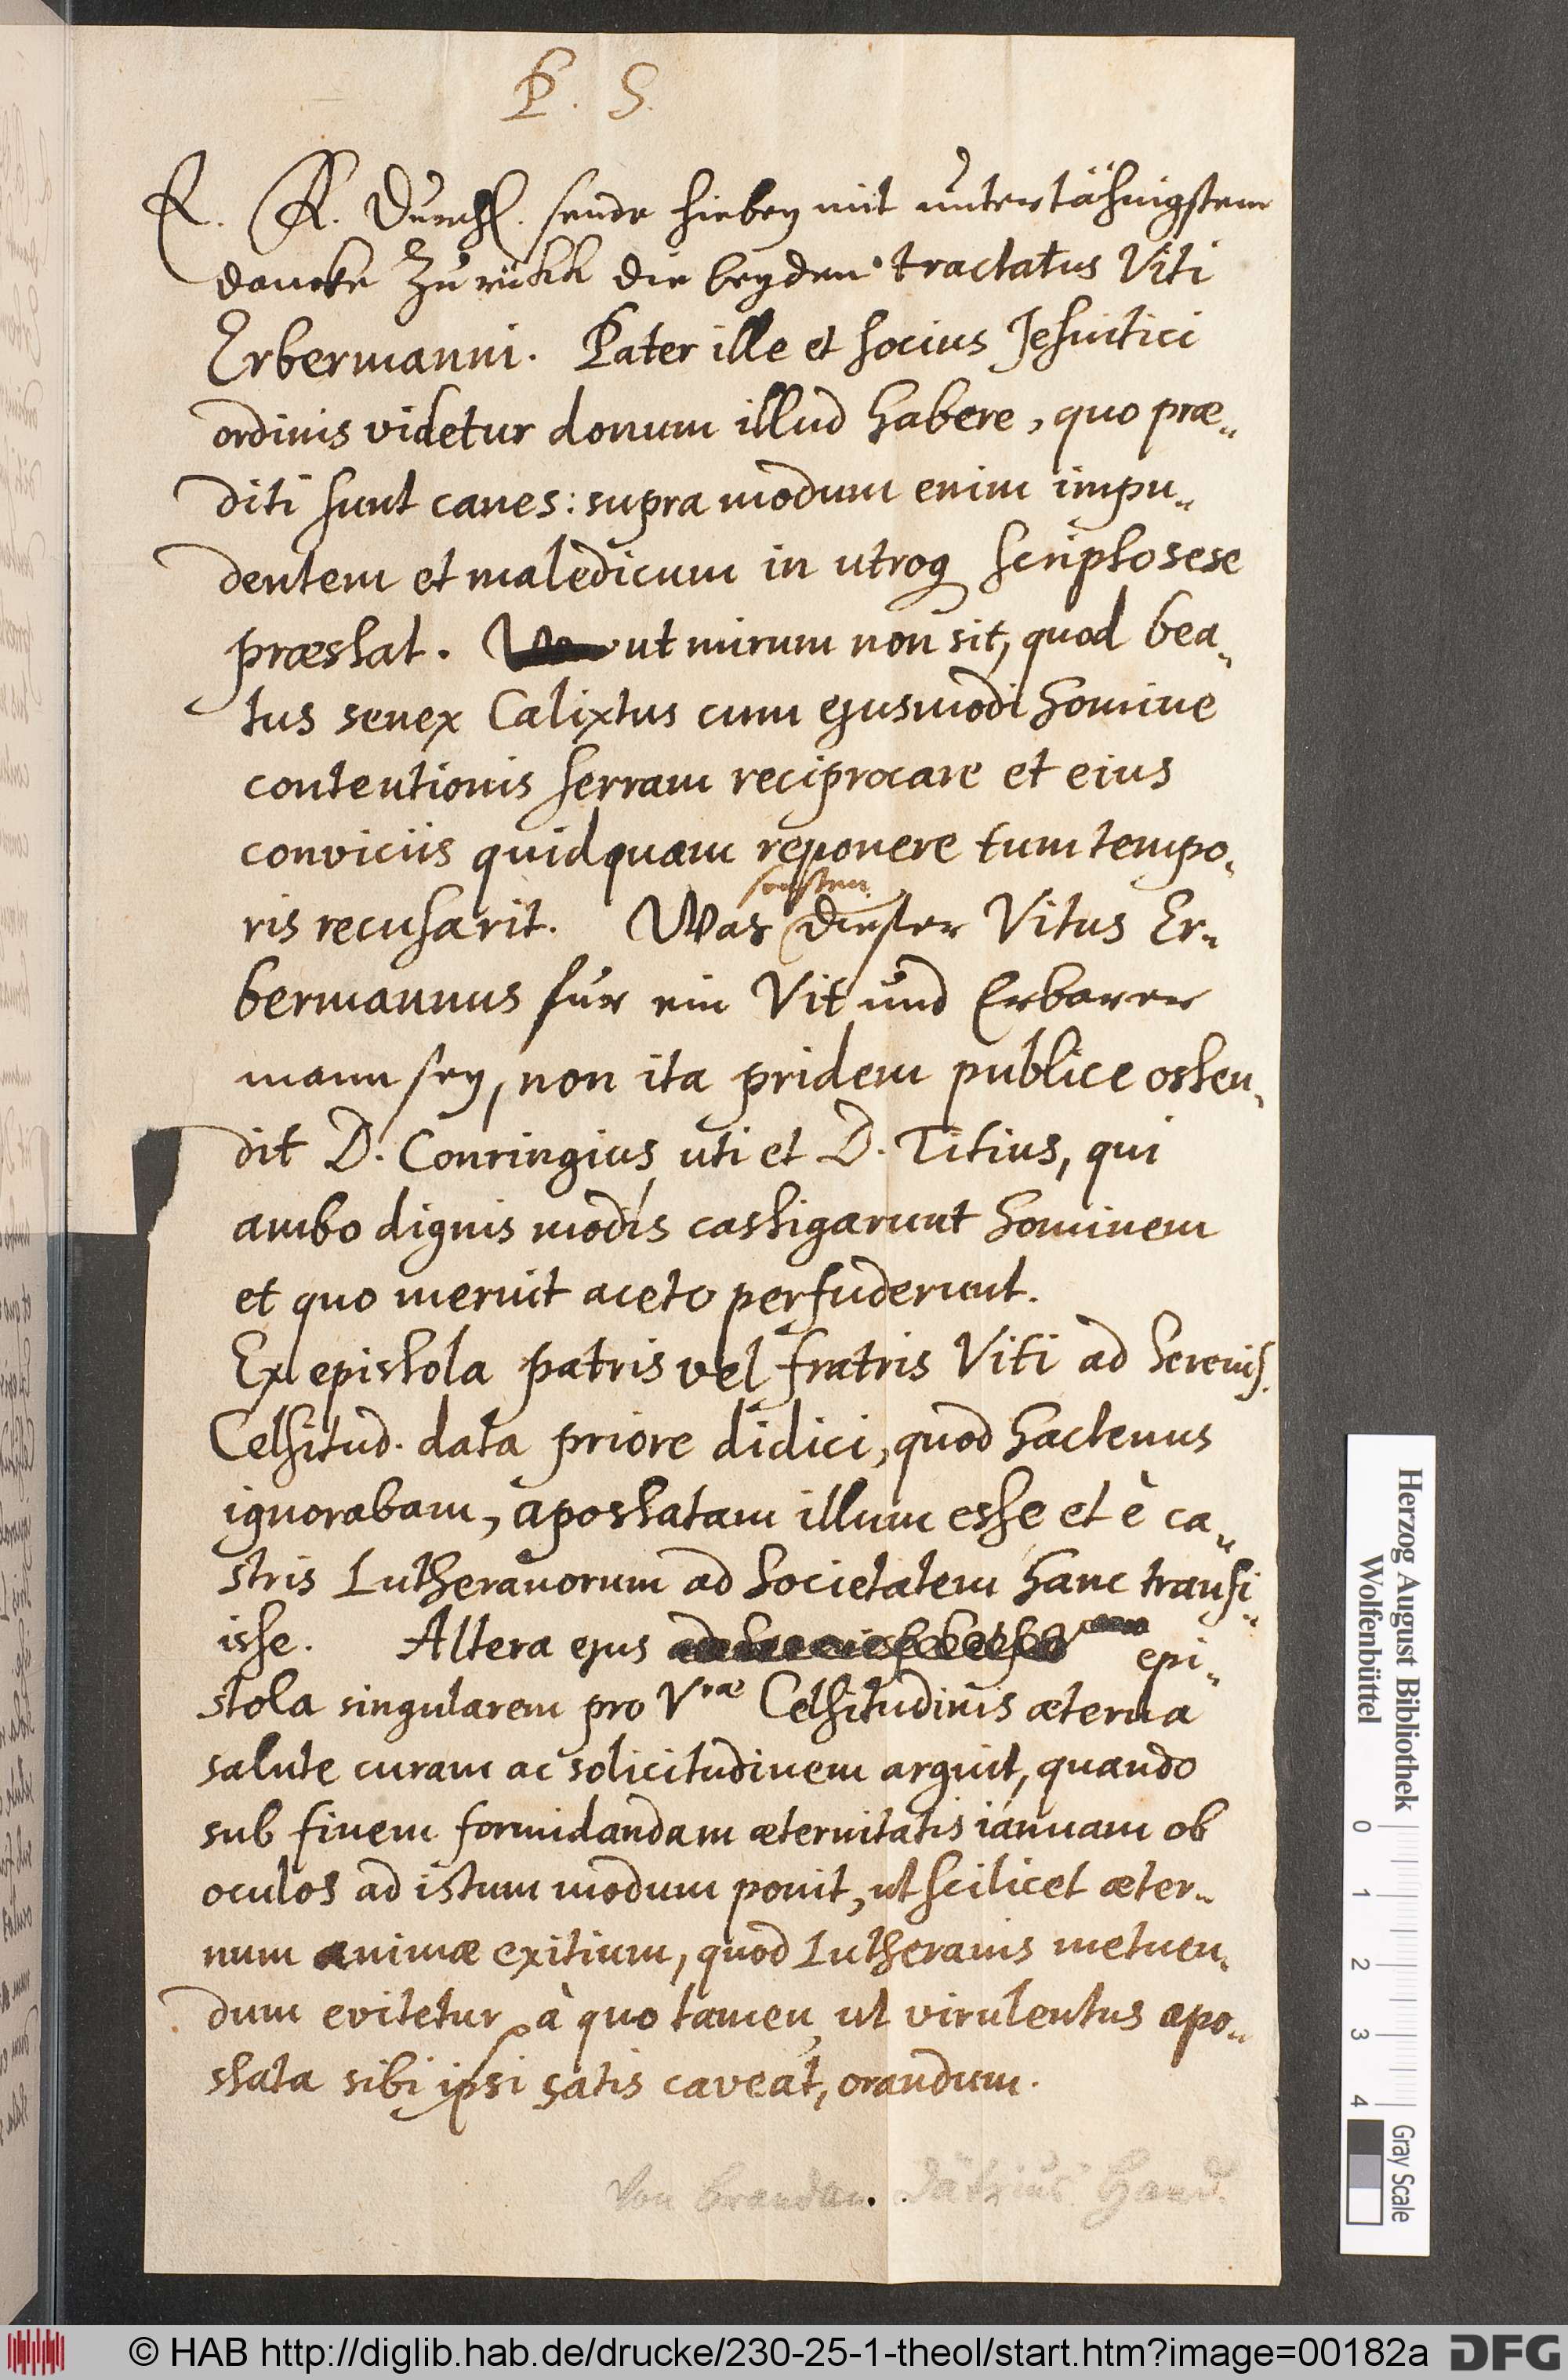 P. S.
E. F. Durchl. sende hiebey mit untertähnigstem
dancke zurükk die beyden tractatus Viti
Erbermanni. Pater ille et socius Jesuitici
ordinis videtur donum illud habere, quo præ„
diti sunt canes: supra modum enim impu„
dentem et maledicum in utroq scripto sese
præstat. ut mirum non sit, quod bea„
tus senex Calixtus cum ejusmodi homine
contentionis serram reciprocare et eius
conviciis quidquam reponere tum tempo„
sonsten
ris recusarit. Was dieser Vitus Er„
bermannus für ein Vit und Erbarer
mann sey, non ita pridem publice osten„
dit D. Conringius, uti et D. Titius, qui
ambo dignis modis castigarunt hominem
et quo meruit aceto perfuderunt.
Ex epistola patris vel fratris Viti ad Sereniss.
Celsitud. data priore didici, quod hactenus
ignorabam, apostatam illum esse et è ca„
stris Lutheranorum ad Societatem hanc transi„
isse. Altera ejus epi„
stola singularem pro Vræ Celsitudinis æterna
salute curam ac solicitudinem arguit, quando
sub finem formidandam æternitatis ianuam ob
oculos ad istum modum ponit, ut scilicet æter„
num animæ exitium, quod Lutheranis metuen„
dum evitetur, à quo tamen, ut virulentus apo„
stata sibi ipsi satis caveat, orandum.
Von Brandan. Dätrius Hand.
Herzog August Bibliothek
Wolfenbüttel
0 1 2 3 4
Gray Scale
© HAB http://diglib.hab.de/drucke/230-25-1-theol/start.htm?image=00182a DFG